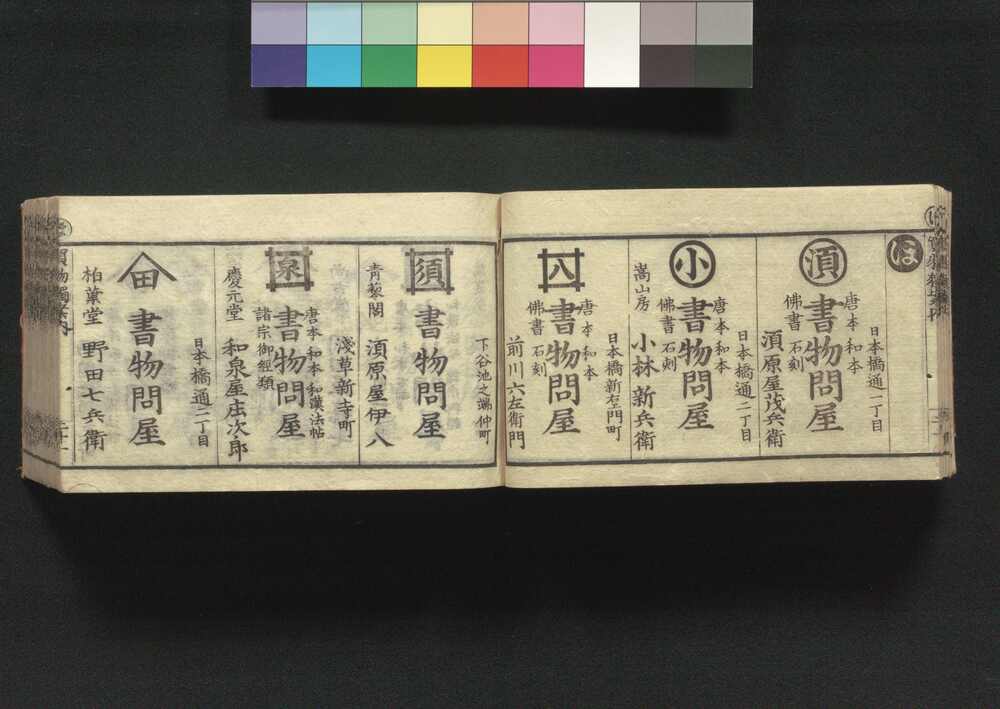 ほ
須
日本橋通一丁目
唐本和本
書物問屋
佛書石刻
須原屋茂兵衛
小
日本橋通二丁目
唐本和本
書物問屋
佛書石刻
嵩山房 小林新兵衛
八
日本橋新右エ門町
唐本和本
書物問屋
佛書石刻
前川六左衛門
下谷池之端仲町
須
書物問屋
青藜閣 須原屋伊八
淺草新寺町
泉
唐本和本和漢法帖
書物問屋
諸宗御經類
慶元堂 和泉屋庄次郎
日本橋通二丁目
田
書物問屋
柏葉堂 野田七兵衛
買物獨案内